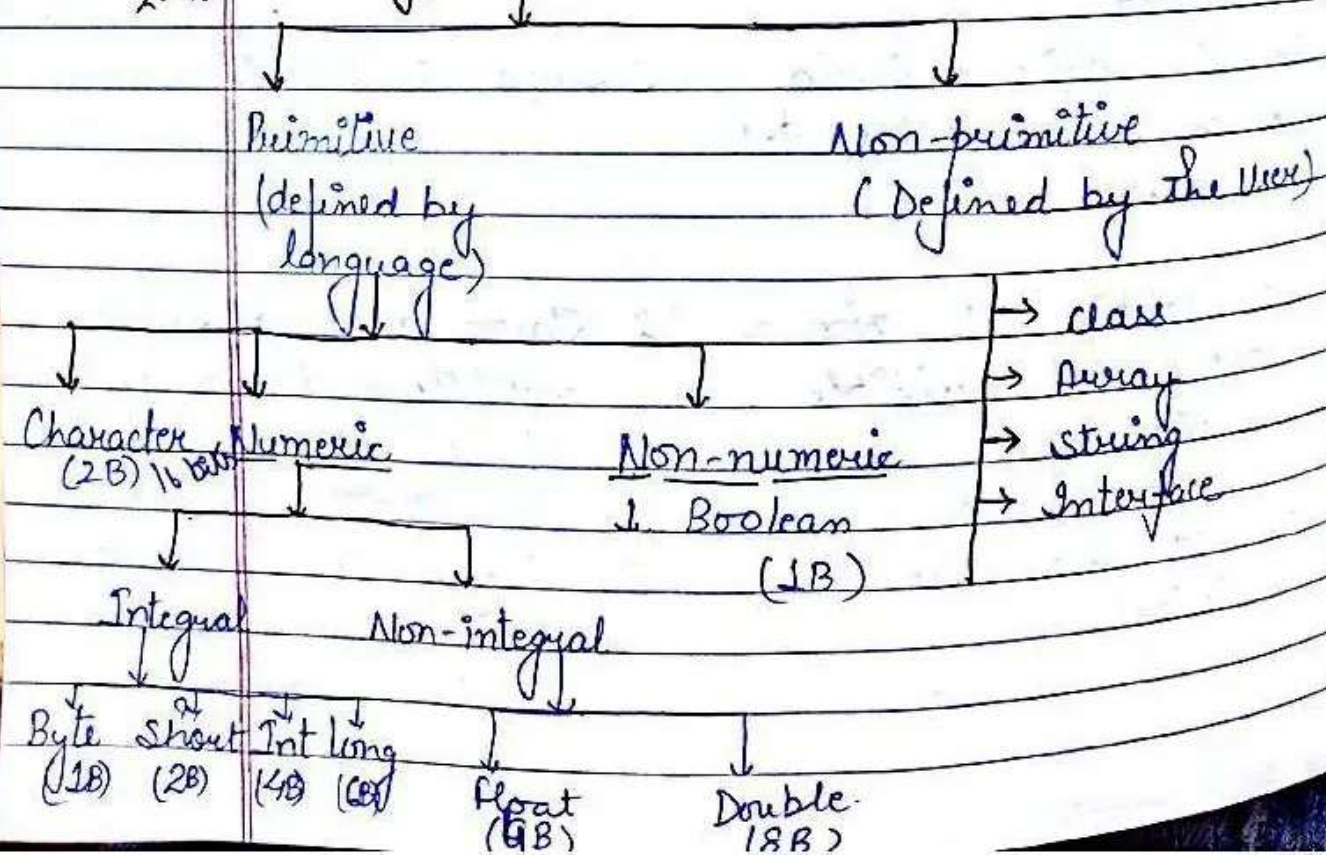 Primitive
(defined by
language)
Non-primitive
(Defined by the User)
→ class
→ Array
→ string
→ Interface
Character
(2B) 16
Numeric
Non-numeric
↓ Boolean
(1B)
Integral
Non-integral
Byte
(1B)
Short
(2B)
Int
(4B)
long
Float
Double
(8B)